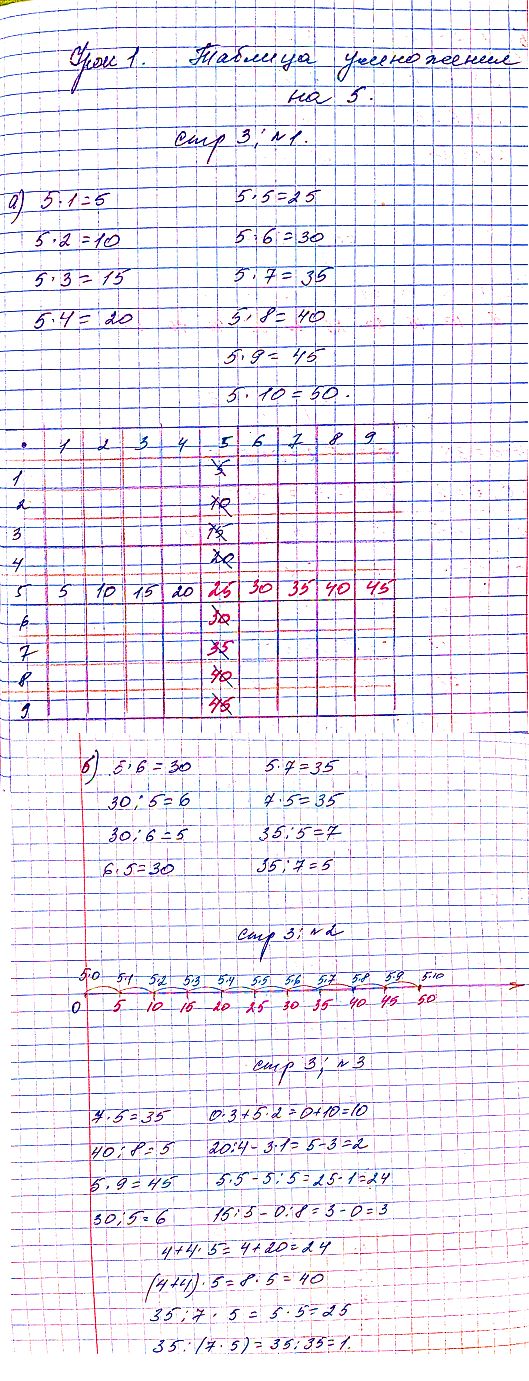 Урок 1. Таблица умножения
на 5.
стр 3; №1.
а) 5·1=5 5·5=25
5·2=10 5·6=30
5·3=15 5·7=35
5·4=20 5·8=40
5·9=45
5·10=50.
• 1 2 3 4 5 6 7 8 9
1 5
2 10
3 15
4 20
5 5 10 15 20 25 30 35 40 45
6 30
7 35
8 40
9 45
б) 5·6=30 5·7=35
30:5=6 7·5=35
30:6=5 35:5=7
6·5=30 35:7=5
стр 3; №2
5·0 5·1 5·2 5·3 5·4 5·5 5·6 5·7 5·8 5·9 5·10
0 5 10 15 20 25 30 35 40 45 50
стр 3; №3
7·5=35 0·3+5·2=0+10=10
40:8=5 20:4-3·1=5-3=2
5·9=45 5·5-5:5=25-1=24
30:5=6 15:5-0:8=3-0=3
4+4·5=4+20=24
(4+4)·5=8·5=40
35:7·5=5·5=25
35:(7·5)=35:35=1.